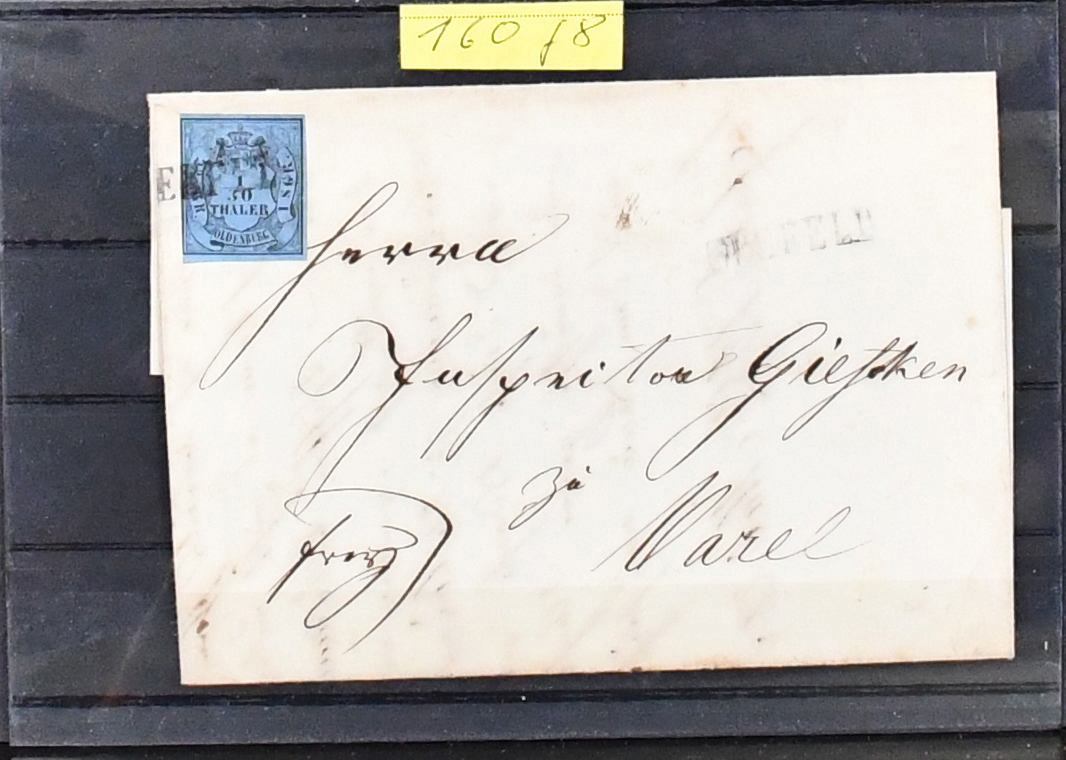 160 f8
1
30
THALER
OLDENBURG
Herrn
Inspector Gieseken
zu
Varel
frey